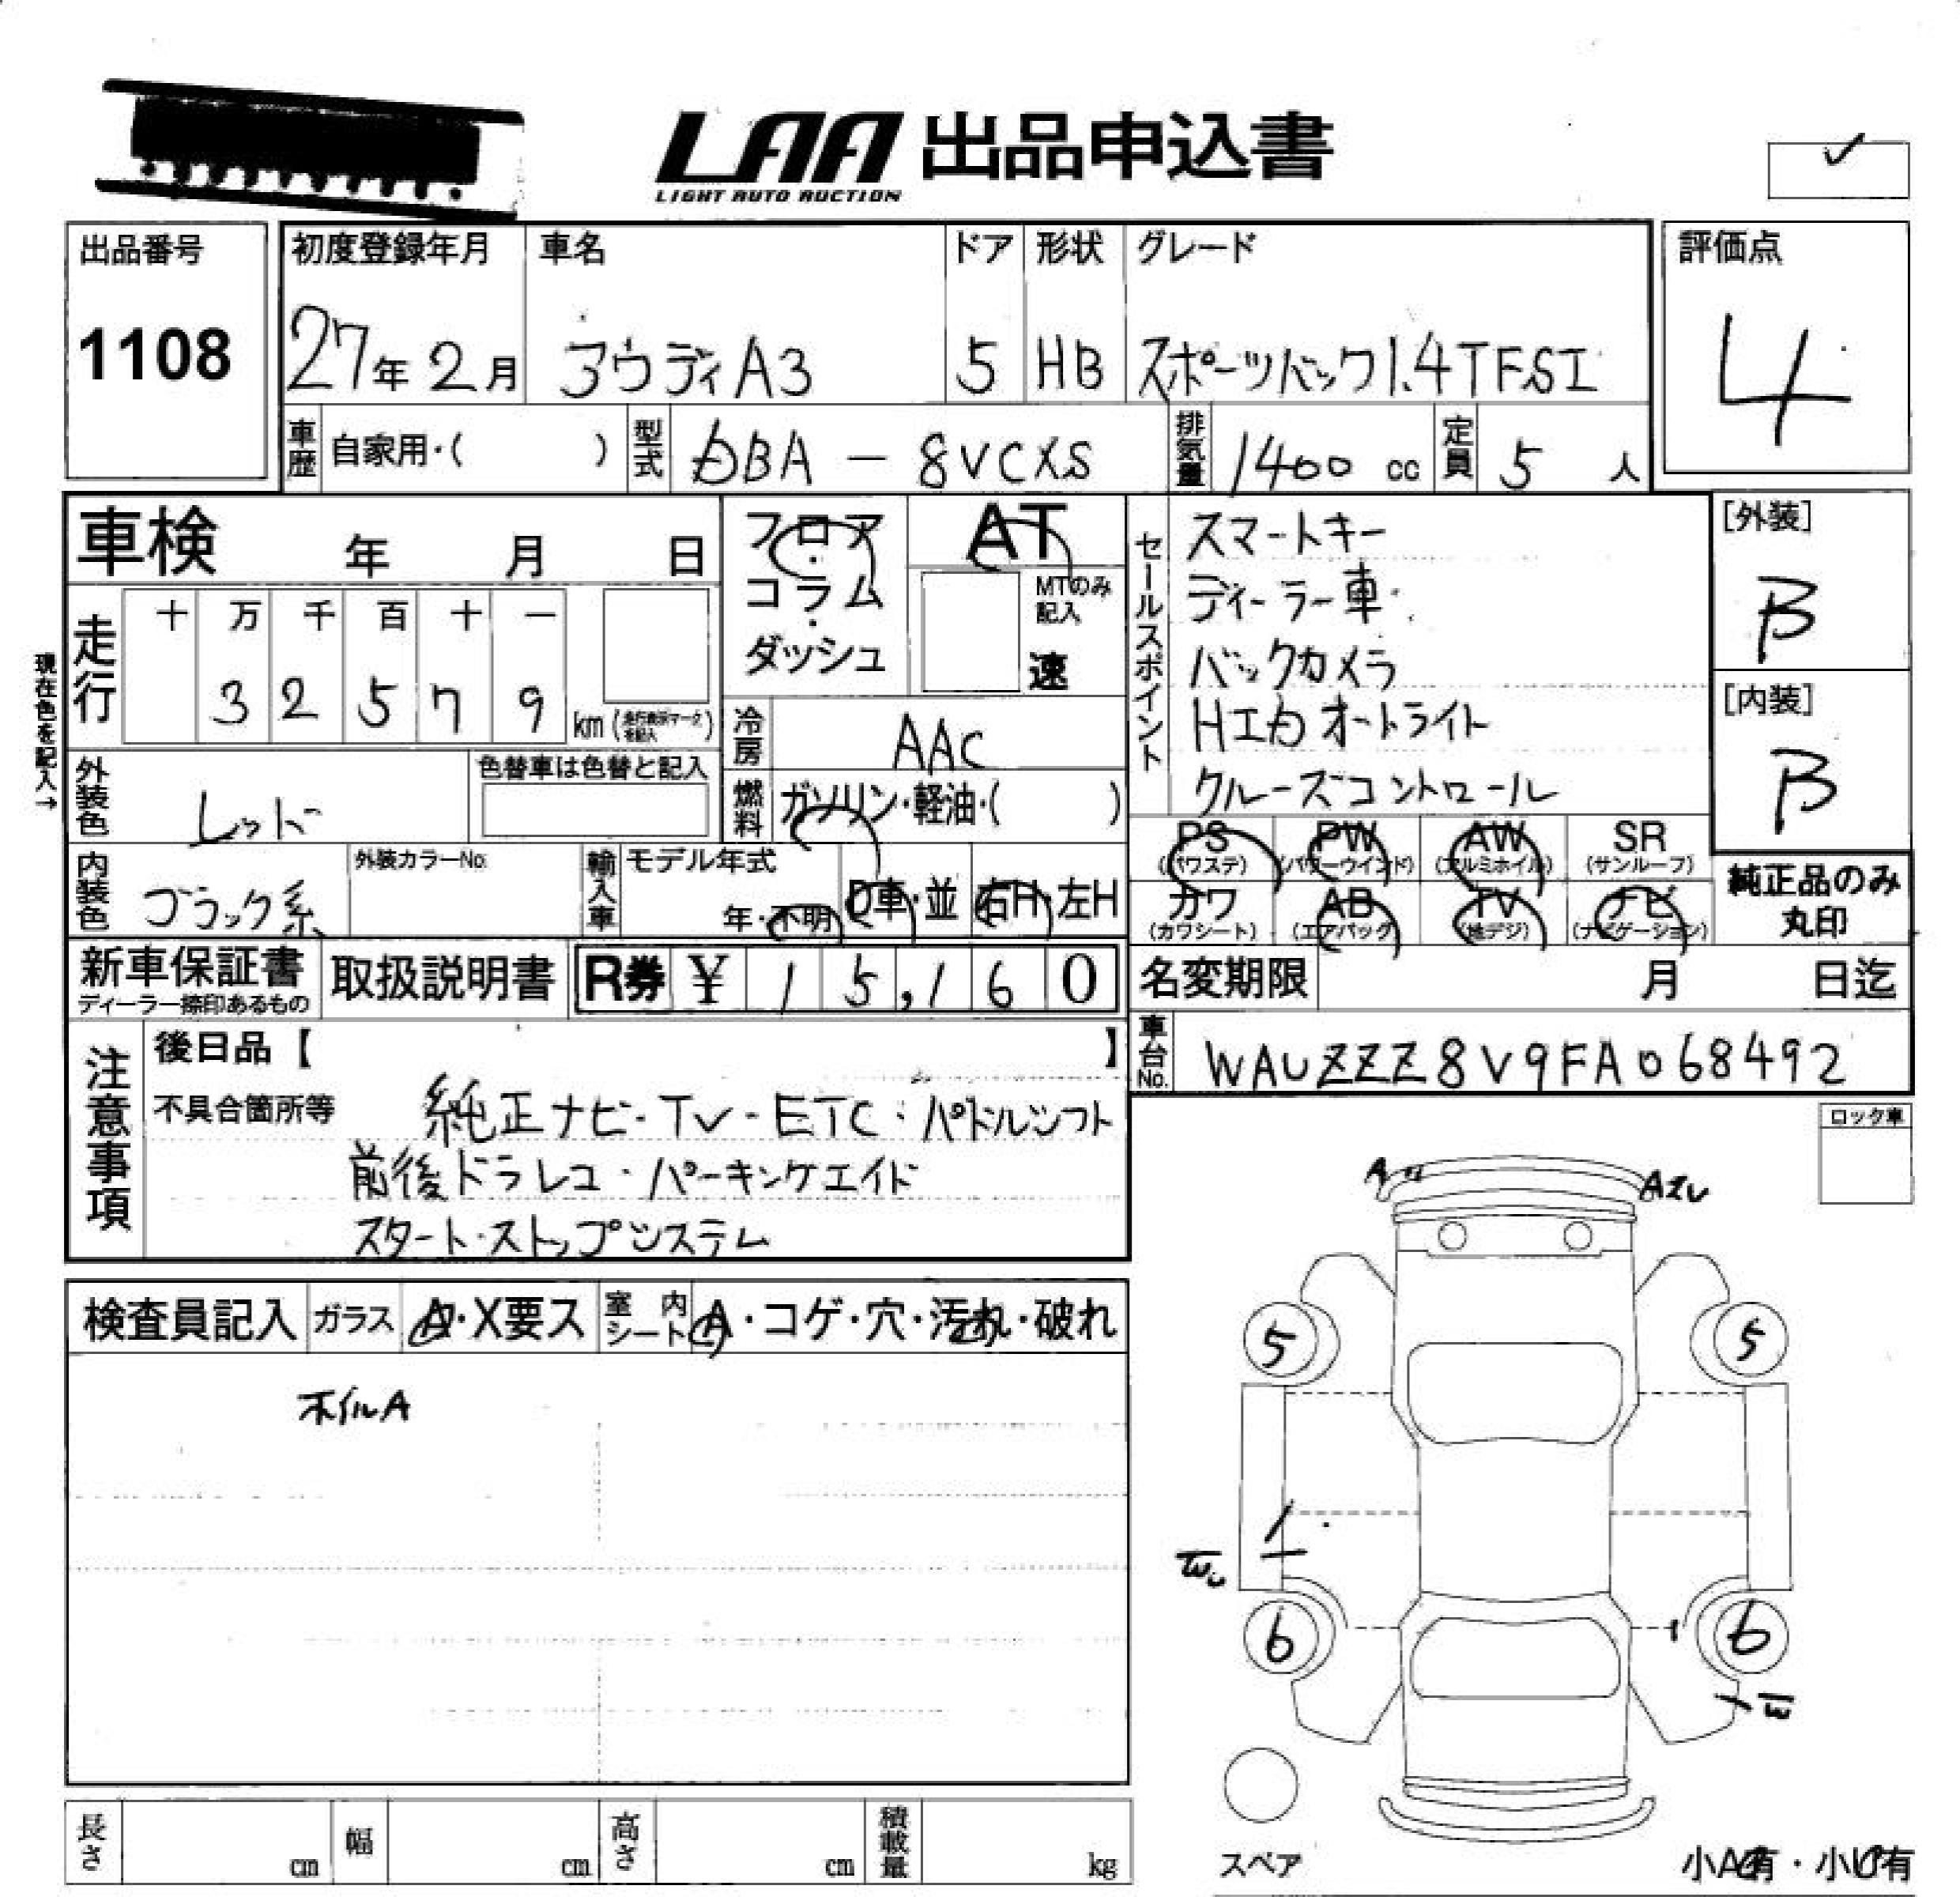 LAA 出品申込書
LIGHT AUTO AUCTION
✓
出品番号
1108
初度登録年月 車名 ドア 形状 グレード
27年 2月 アウディA3 5 HB スポーツバック1.4TFSI
評価点
4
車歴 自家用・( ) 型式 DBA - 8VCXS 排気量 1400 cc 定員 5 人
車検 年 月 日
フロア・コラム・ダッシュ
AT
MTのみ記入
速
セールスポイント
スマートキー
ディーラー車
バックカメラ
HID オートライト
クルーズコントロール
[外装]
B
[内装]
B
現在色を記入→
走行 十 万 千 百 十 一
3 2 5 7 9 km
冷房 AAC
外装色 レッド 色替車は色替と記入
燃料 ガソリン・軽油・( )
内装色 ブラック系 外装カラーNo. 輸入車 モデル年式 年・不明 D車・並 右H・左H
PS (パワステ) PW (パワーウインド) AW (アルミホイル) SR (サンルーフ)
カワ (カワシート) AB (エアバッグ) TV (地デジ) ナビ (ナビゲーション)
純正品のみ
丸印
新車保証書 取扱説明書 R券 ¥ 15,160
ディーラー捺印あるもの
名変期限 月 日迄
車台No. WAUZZZ8V9FA068492
注意事項
後日品【 】
不具合箇所等 純正ナビ・TV・ETC・パドルシフト
前後ドラレコ・パーキングエイド
スタート・ストップシステム
ロック車
検査員記入 ガラス A・X要ス 室内シート A・コゲ・穴・汚れ・破れ
ホイルA
A
5 5
6 6
スペア
小A有・小U有
長さ cm 幅 cm 高さ cm 積載量 kg